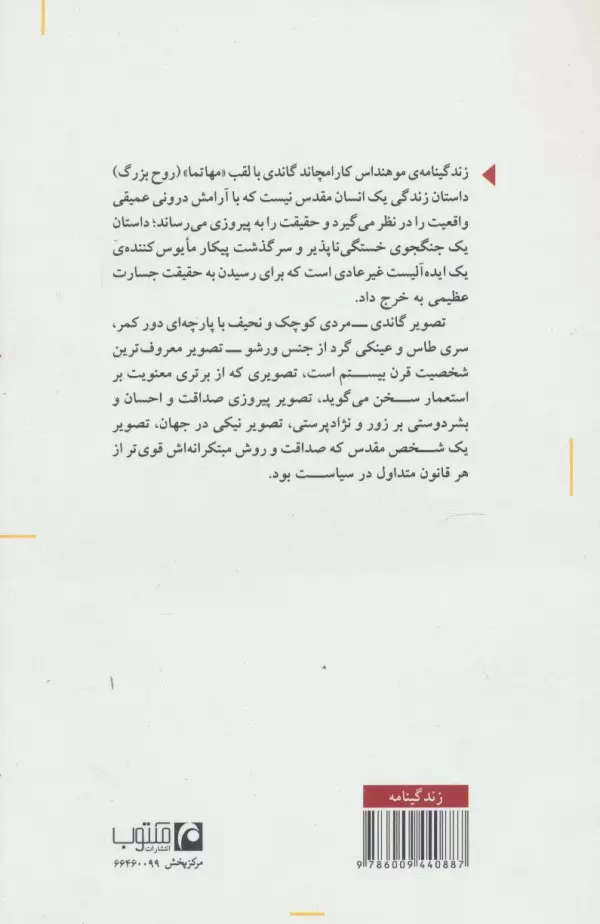 زندگینامه‌ی موهنداس کارامچاند گاندی با لقب «مهاتما» (روح بزرگ)
داستان زندگی یک انسان مقدس نیست که با آرامش درونی عمیقی
واقعیت را در نظر می‌گیرد و حقیقت را به پیروزی می‌رساند؛ داستان
یک جنگجوی خستگی‌ناپذیر و سرگذشت پیکار مأیوس‌کننده‌ی
یک ایده‌آلیست غیرعادی است که برای رسیدن به حقیقت جسارت
عظیمی به خرج داد.
تصویر گاندی ــ مردی کوچک و نحیف با پارچه‌ای دور کمر،
سری طاس و عینکی گرد از جنس ورشو ــ تصویر معروف‌ترین
شخصیت قرن بیستم است، تصویری که از برتری معنویت بر
استعمار سخن می‌گوید، تصویر پیروزی صداقت و احسان و
بشردوستی بر زور و نژادپرستی، تصویر نیکی در جهان، تصویر
یک شخص مقدس که صداقت و روش مبتکرانه‌اش قوی‌تر از
هر قانون متداول در سیاست بود.
زندگینامه
9 786009 440887
مکتوب
انتشارات
مرکز پخش ۶۶۴۶۰۰۹۹